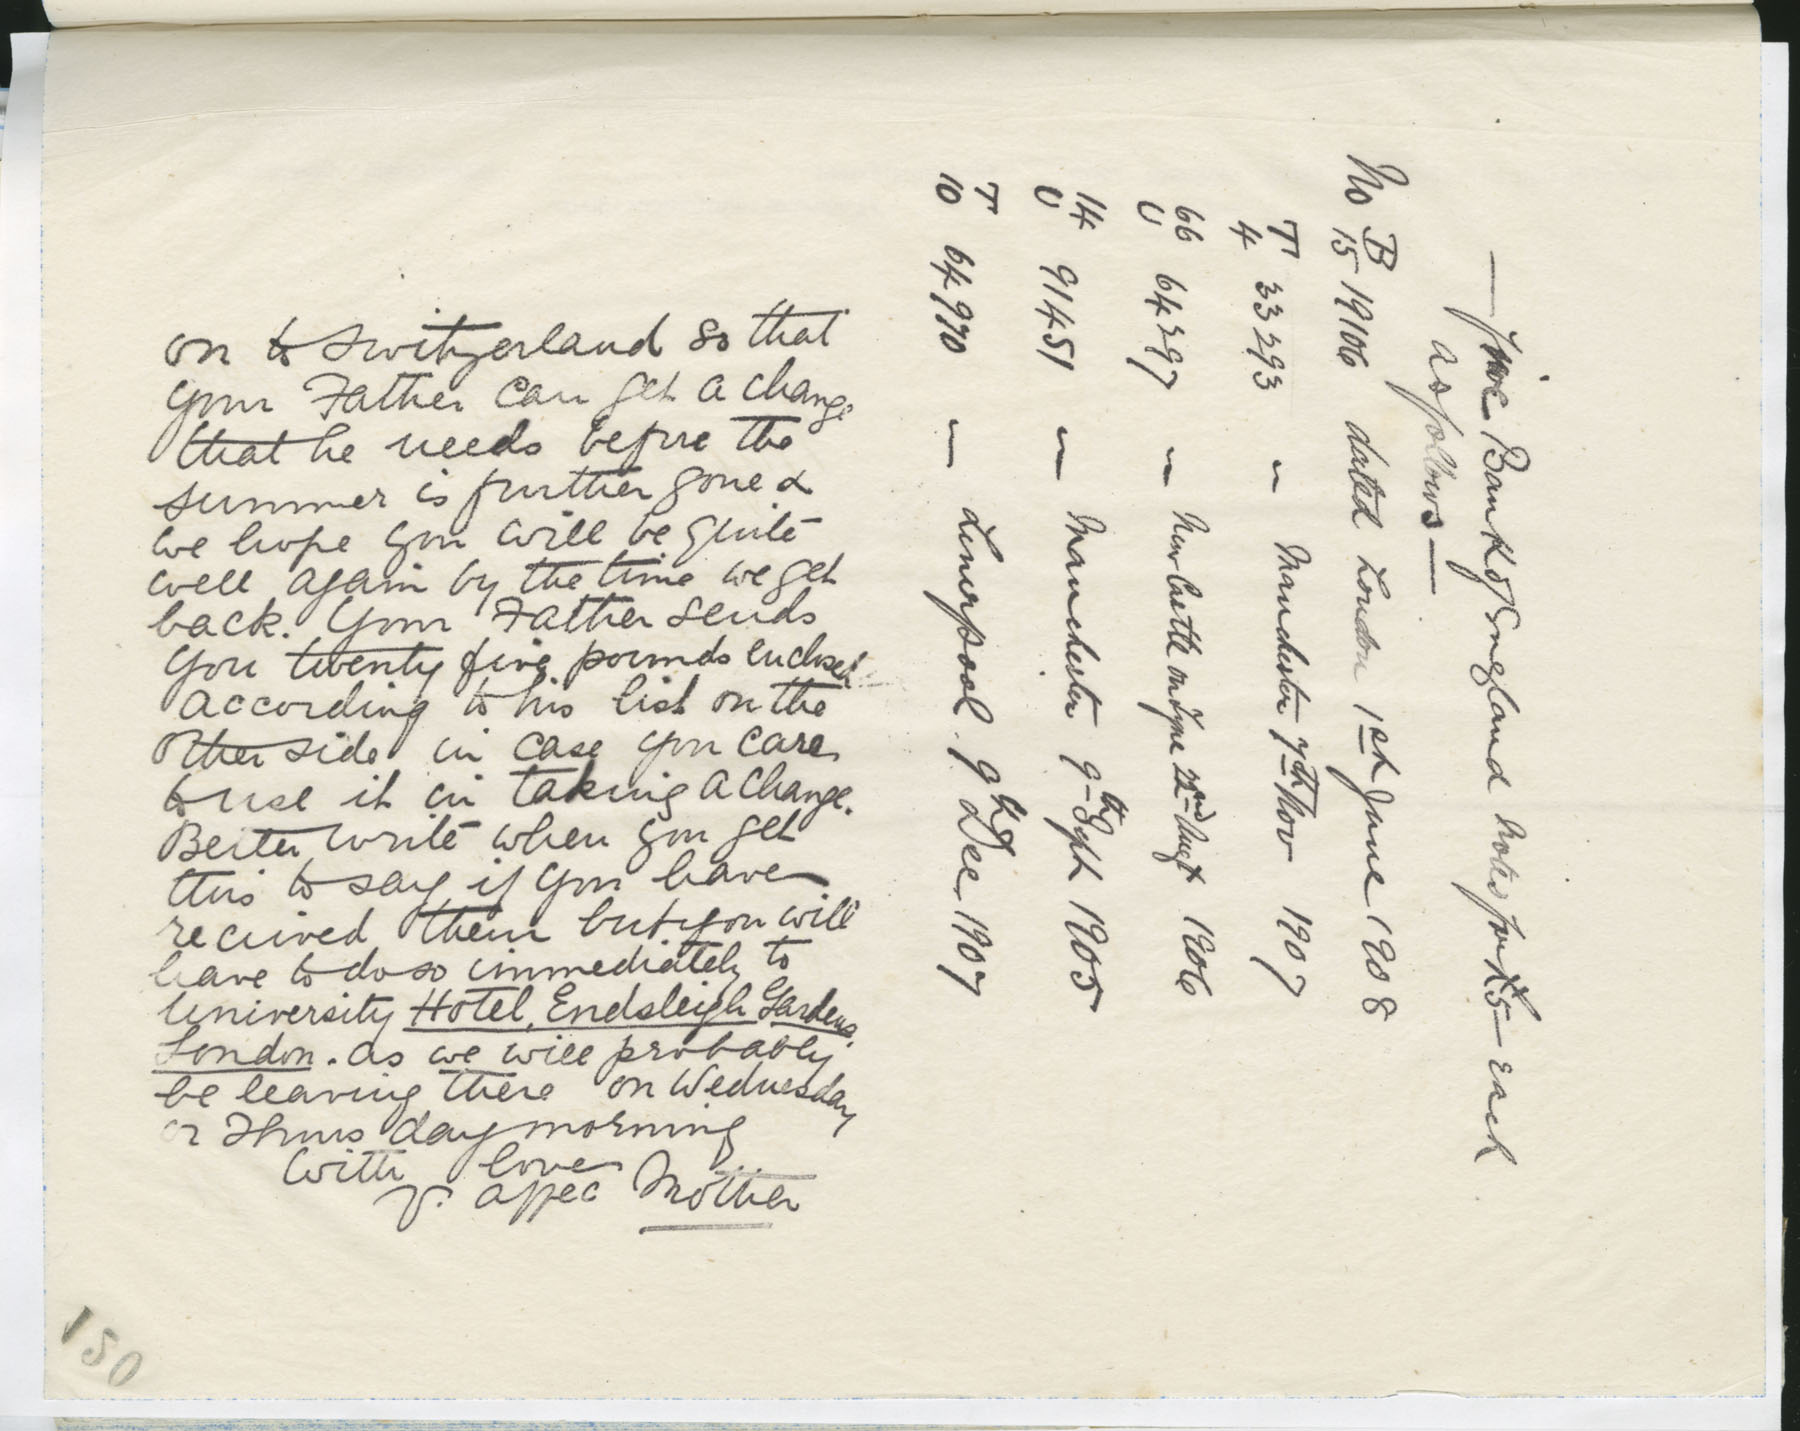 on to Switzerland so that
your Father can get a change
that he needs before the
summer is further gone &
we hope you will be quite
well again by the time we get
back. Your Father sends
you twenty five pounds enclosed
according to his list on the
other side in case you care
to use it in taking a change.
Better write when you get
this to say if you have
recieved them but you will
have to do so immediately to
University Hotel, Endsleigh Gardens,
London. as we will probably
be leaving there on Wednesday
or Thursday morning
With love
yr. affec Mother
— Five Bank of England notes for £5 – each
as follows —
No B/15 19106 dated London 1st June 1908
T/4 33293 " Manchester 7th Nov 1907
66/U 64297 " New Castle on Tyne 22nd Augt 1906
14/U 91451 " Manchester 9th Sept 1905
T/10 64970 " Liverpool 9th Dec 1907
150